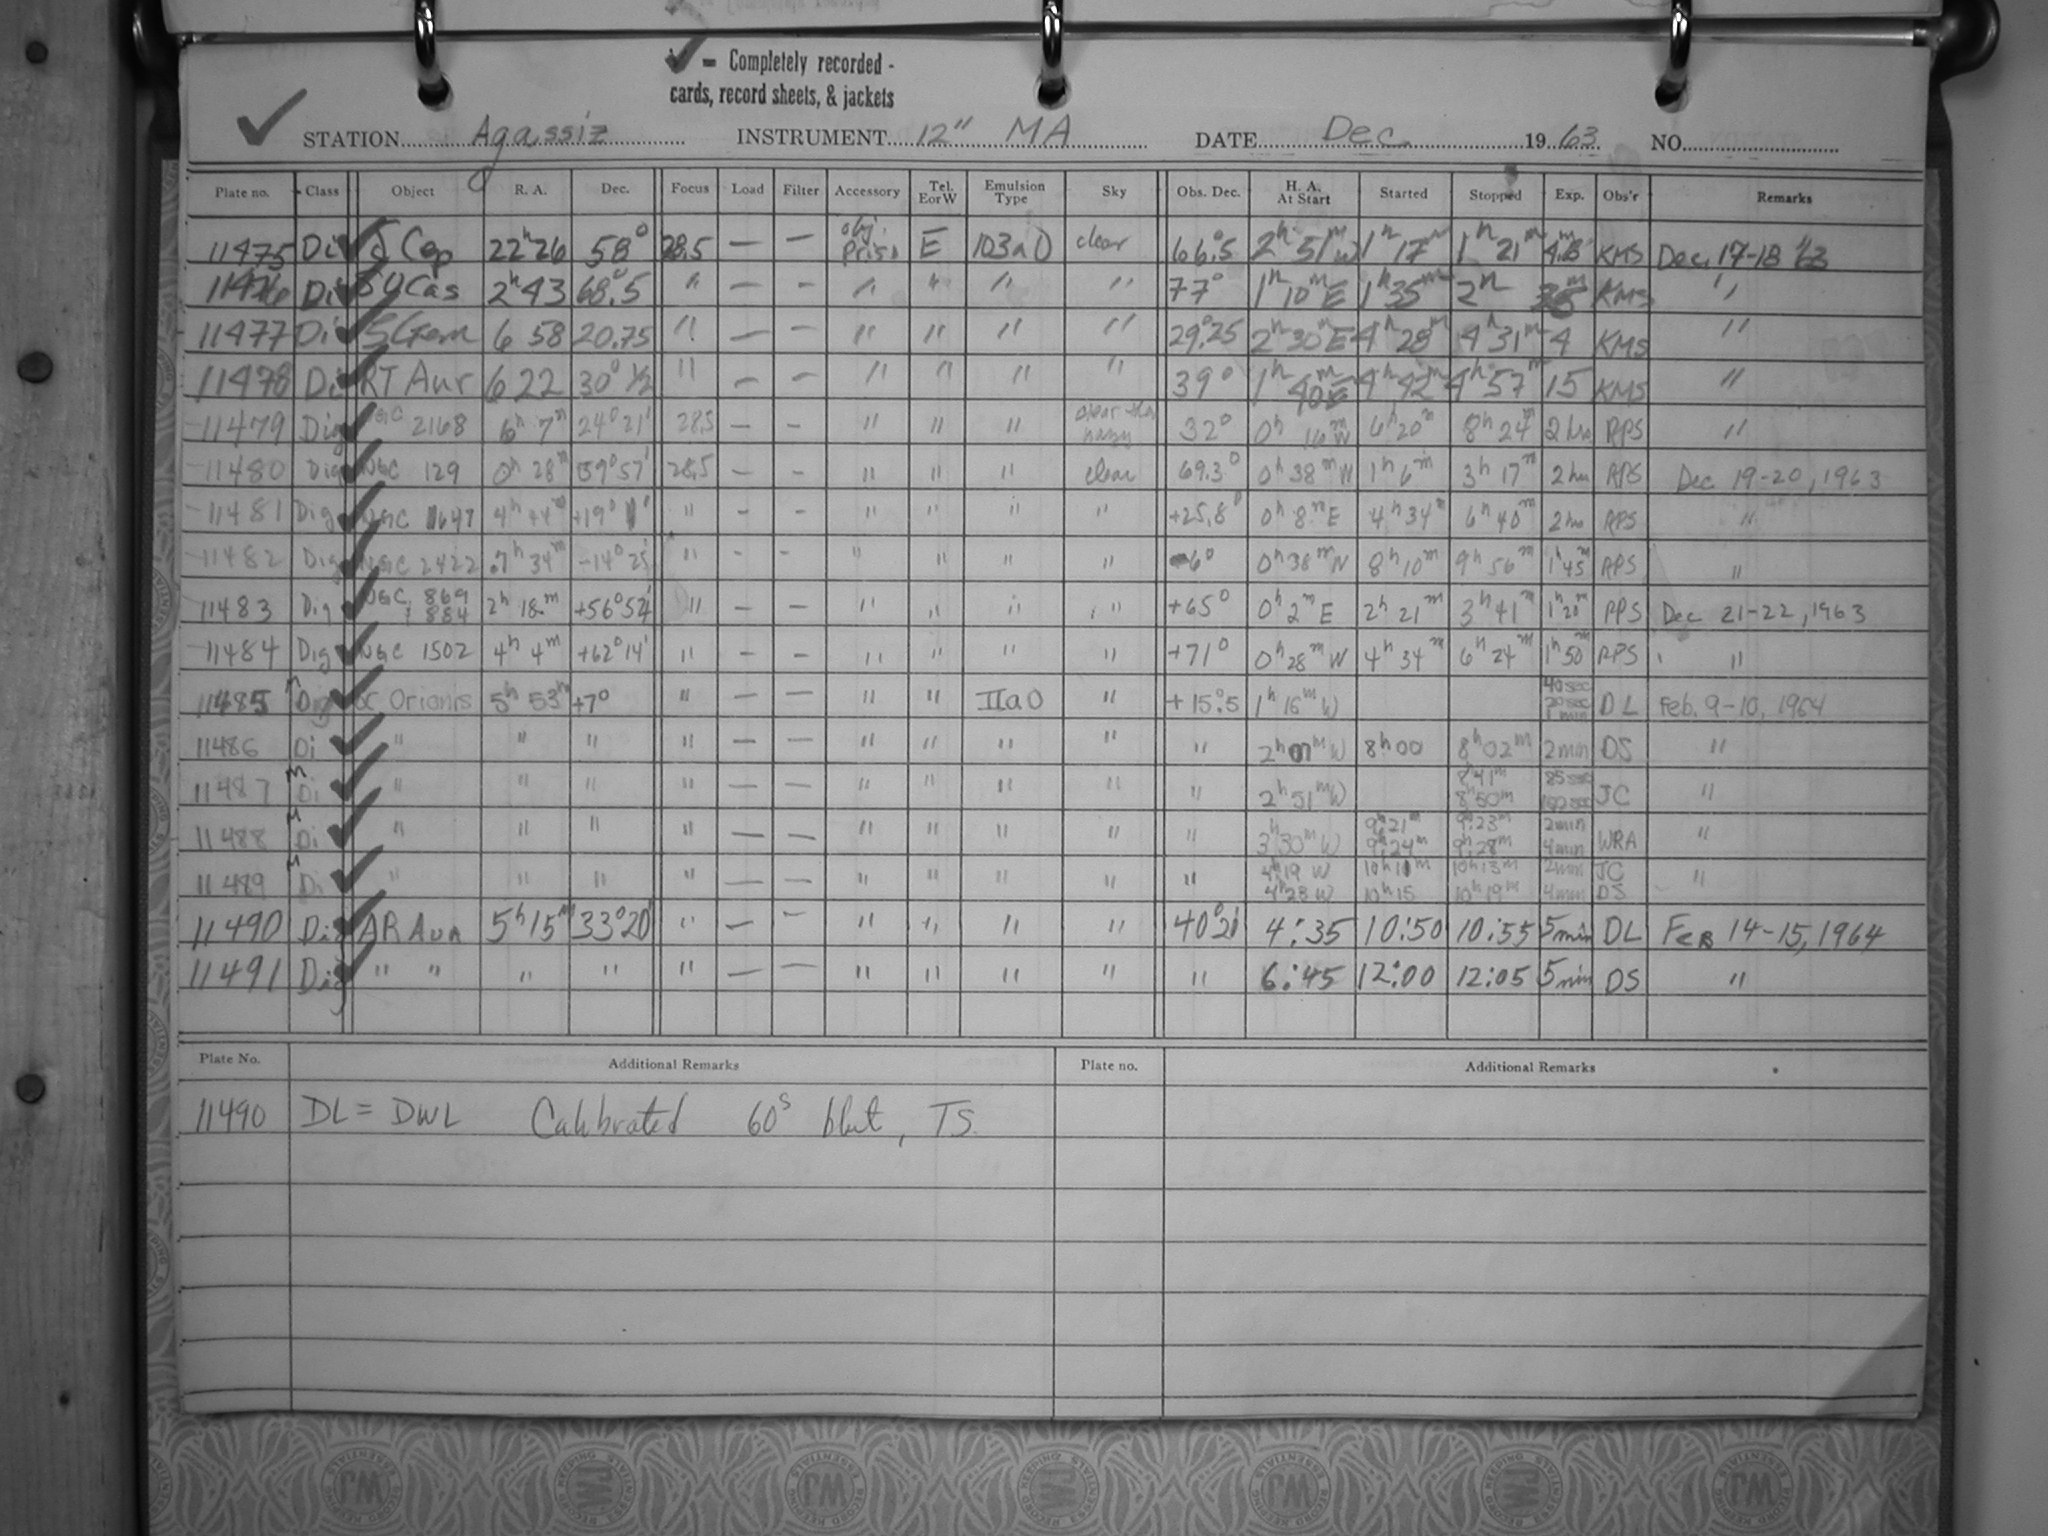 ✓ = Completely recorded -
cards, record sheets, & jackets
STATION Agassiz INSTRUMENT 12" MA DATE Dec. 1963 NO.
Plate no. Class Object R. A. Dec. Focus Load Filter Accessory Tel. E or W Emulsion Type Sky Obs. Dec. H. A. At Start Started Stopped Exp. Obs'r Remarks
11475 Di ✓ δ Cep 22h26 58° 28.5 — — obj. Prism E 103aO clear 66°.5 2h 51m W 1h 17m 1h 21m KMS Dec. 17-18 '63
11476 Di ✓ SU Cas 2h43 68°.5 " — — " " " " 77° 1h 10m E 1h 35m 2h KMS "
11477 Di ✓ ζ Gem 6 58 20.75 " — — " " " " 29°.25 2h 30m E 4h 28m 4h 31m 4 KMS "
11478 Di ✓ RT Aur 6 22 30° 1/2 " — — " " " " 39° 1h 40m E 4h 42m 4h 57m 15 KMS "
11479 Dig ✓ NGC 2168 6h 7m 24° 21' 28.5 — — " " " clear then hazy 32° 0h 16m W 6h 20m 8h 24m 2 hrs RPS "
11480 Dig ✓ NGC 129 0h 28m 59° 57' 28.5 — — " " " clear 69.3° 0h 38m W 1h 6m 3h 17m 2 hrs RPS Dec 19-20, 1963
11481 Dig ✓ NGC 1647 4h 44m +19° " - - " " " " +25.8° 0h 8m E 4h 34m 6h 40m 2 hrs RPS "
11482 Dig ✓ NGC 2422 7h 34m -14° 25' " - - " " " " -6° 0h 38m W 8h 10m 9h 56m 1h 45m RPS "
11483 Dig ✓ NGC 869 & 884 2h 18m +56° 54' " — — " " " " +65° 0h 2m E 2h 21m 3h 41m 1h 20m RPS Dec 21-22, 1963
11484 Dig ✓ NGC 1502 4h 4m +62° 14' " — — " " " " +71° 0h 28m W 4h 34m 6h 24m 1h 50m RPS "
11485 m Dig ✓ α Orionis 5h 53m +7° " — — " " IIaO " +15°.5 1h 16m W 40 sec 20 sec 1 min DL Feb. 9-10, 1964
11486 Di ✓ " " " " — — " " " " " 2h 07m W 8h 00 8h 02m 2 min DS "
11487 m Di ✓ " " " " — — " " " " " 2h 51m W 8h 41m 8h 50m 85 sec JC "
11488 m Di ✓ " " " " — — " " " " " 3h 30m W 9h 21m 9h 24m 9h 23m 9h 28m 2 min 4 min WRA "
11489 m Di ✓ " " " " — — " " " " " 4h 19 W 4h 23 W 10h 11m 10h 15 10h 13m 10h 19m 2 min 4 min JC DS "
11490 Dig ✓ AR Aur 5h 15m 33° 20' " — — " " " " 40° 21' 4:35 10:50 10:55 5 min DL Feb 14-15, 1964
11491 Dig ✓ " " " " " — — " " " " " 6:45 12:00 12:05 5 min DS "
Plate No. Additional Remarks Plate no. Additional Remarks
11490 DL = DWL Calibrated 60s blut, TS.